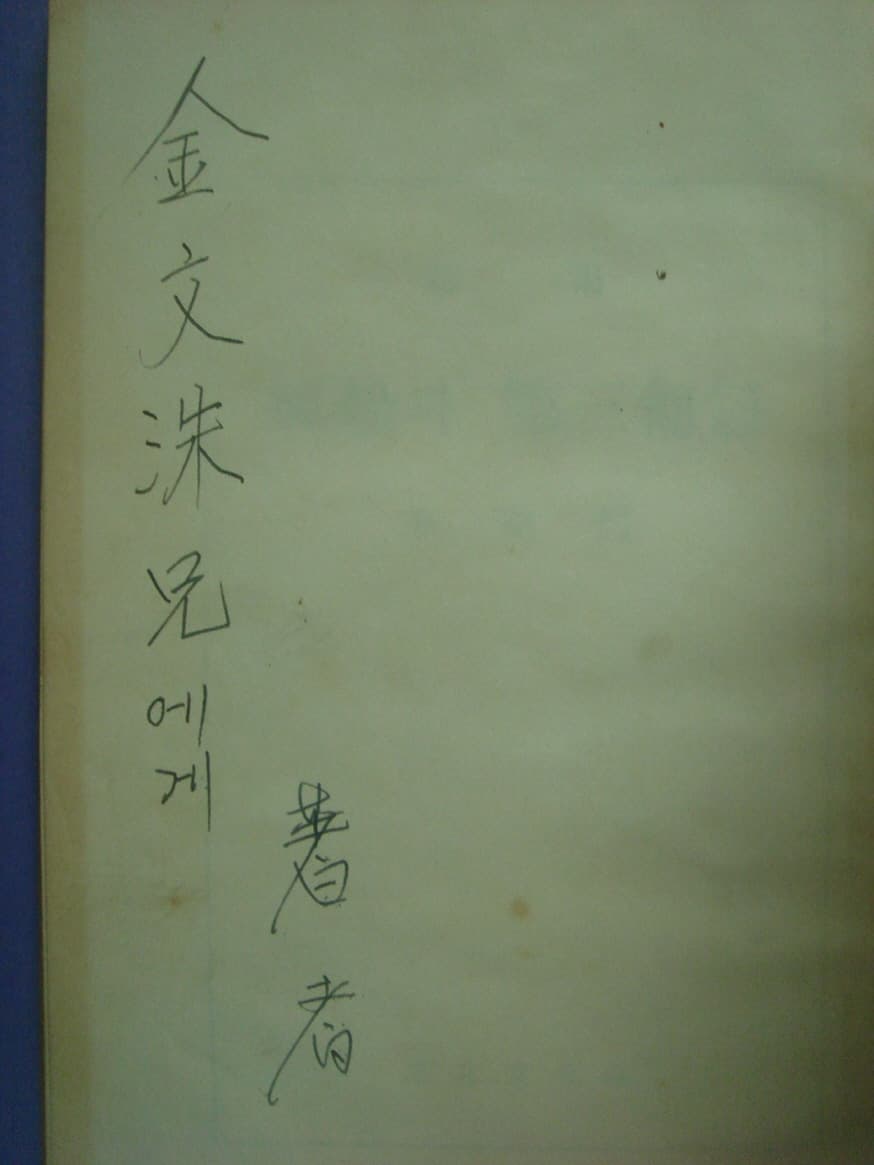 金文洙兄에게
著者